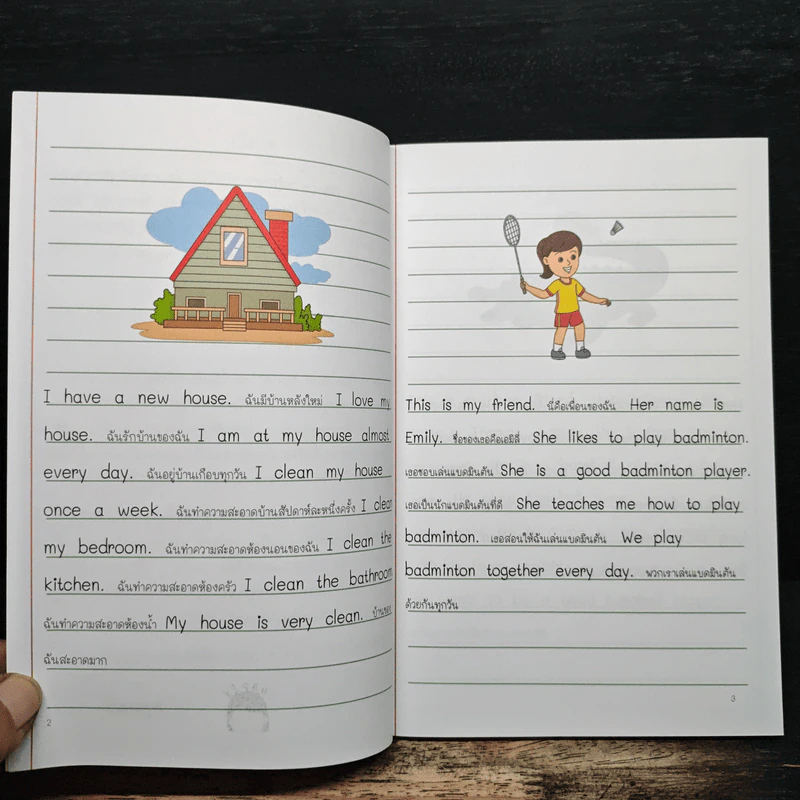 I have a new house. ฉันมีบ้านหลังใหม่ I love my
house. ฉันรักบ้านของฉัน I am at my house almost
every day. ฉันอยู่บ้านเกือบทุกวัน I clean my house
once a week. ฉันทำความสะอาดบ้านสัปดาห์ละหนึ่งครั้ง I clean
my bedroom. ฉันทำความสะอาดห้องนอนของฉัน I clean the
kitchen. ฉันทำความสะอาดห้องครัว I clean the bathroom
ฉันทำความสะอาดห้องน้ำ My house is very clean. บ้านของ
ฉันสะอาดมาก
2
This is my friend. นี่คือเพื่อนของฉัน Her name is
Emily. ชื่อของเธอคือเอมิลี่ She likes to play badminton.
เธอชอบเล่นแบดมินตัน She is a good badminton player.
เธอเป็นนักแบดมินตันที่ดี She teaches me how to play
badminton. เธอสอนให้ฉันเล่นแบดมินตัน We play
badminton together every day. พวกเราเล่นแบดมินตัน
ด้วยกันทุกวัน
3